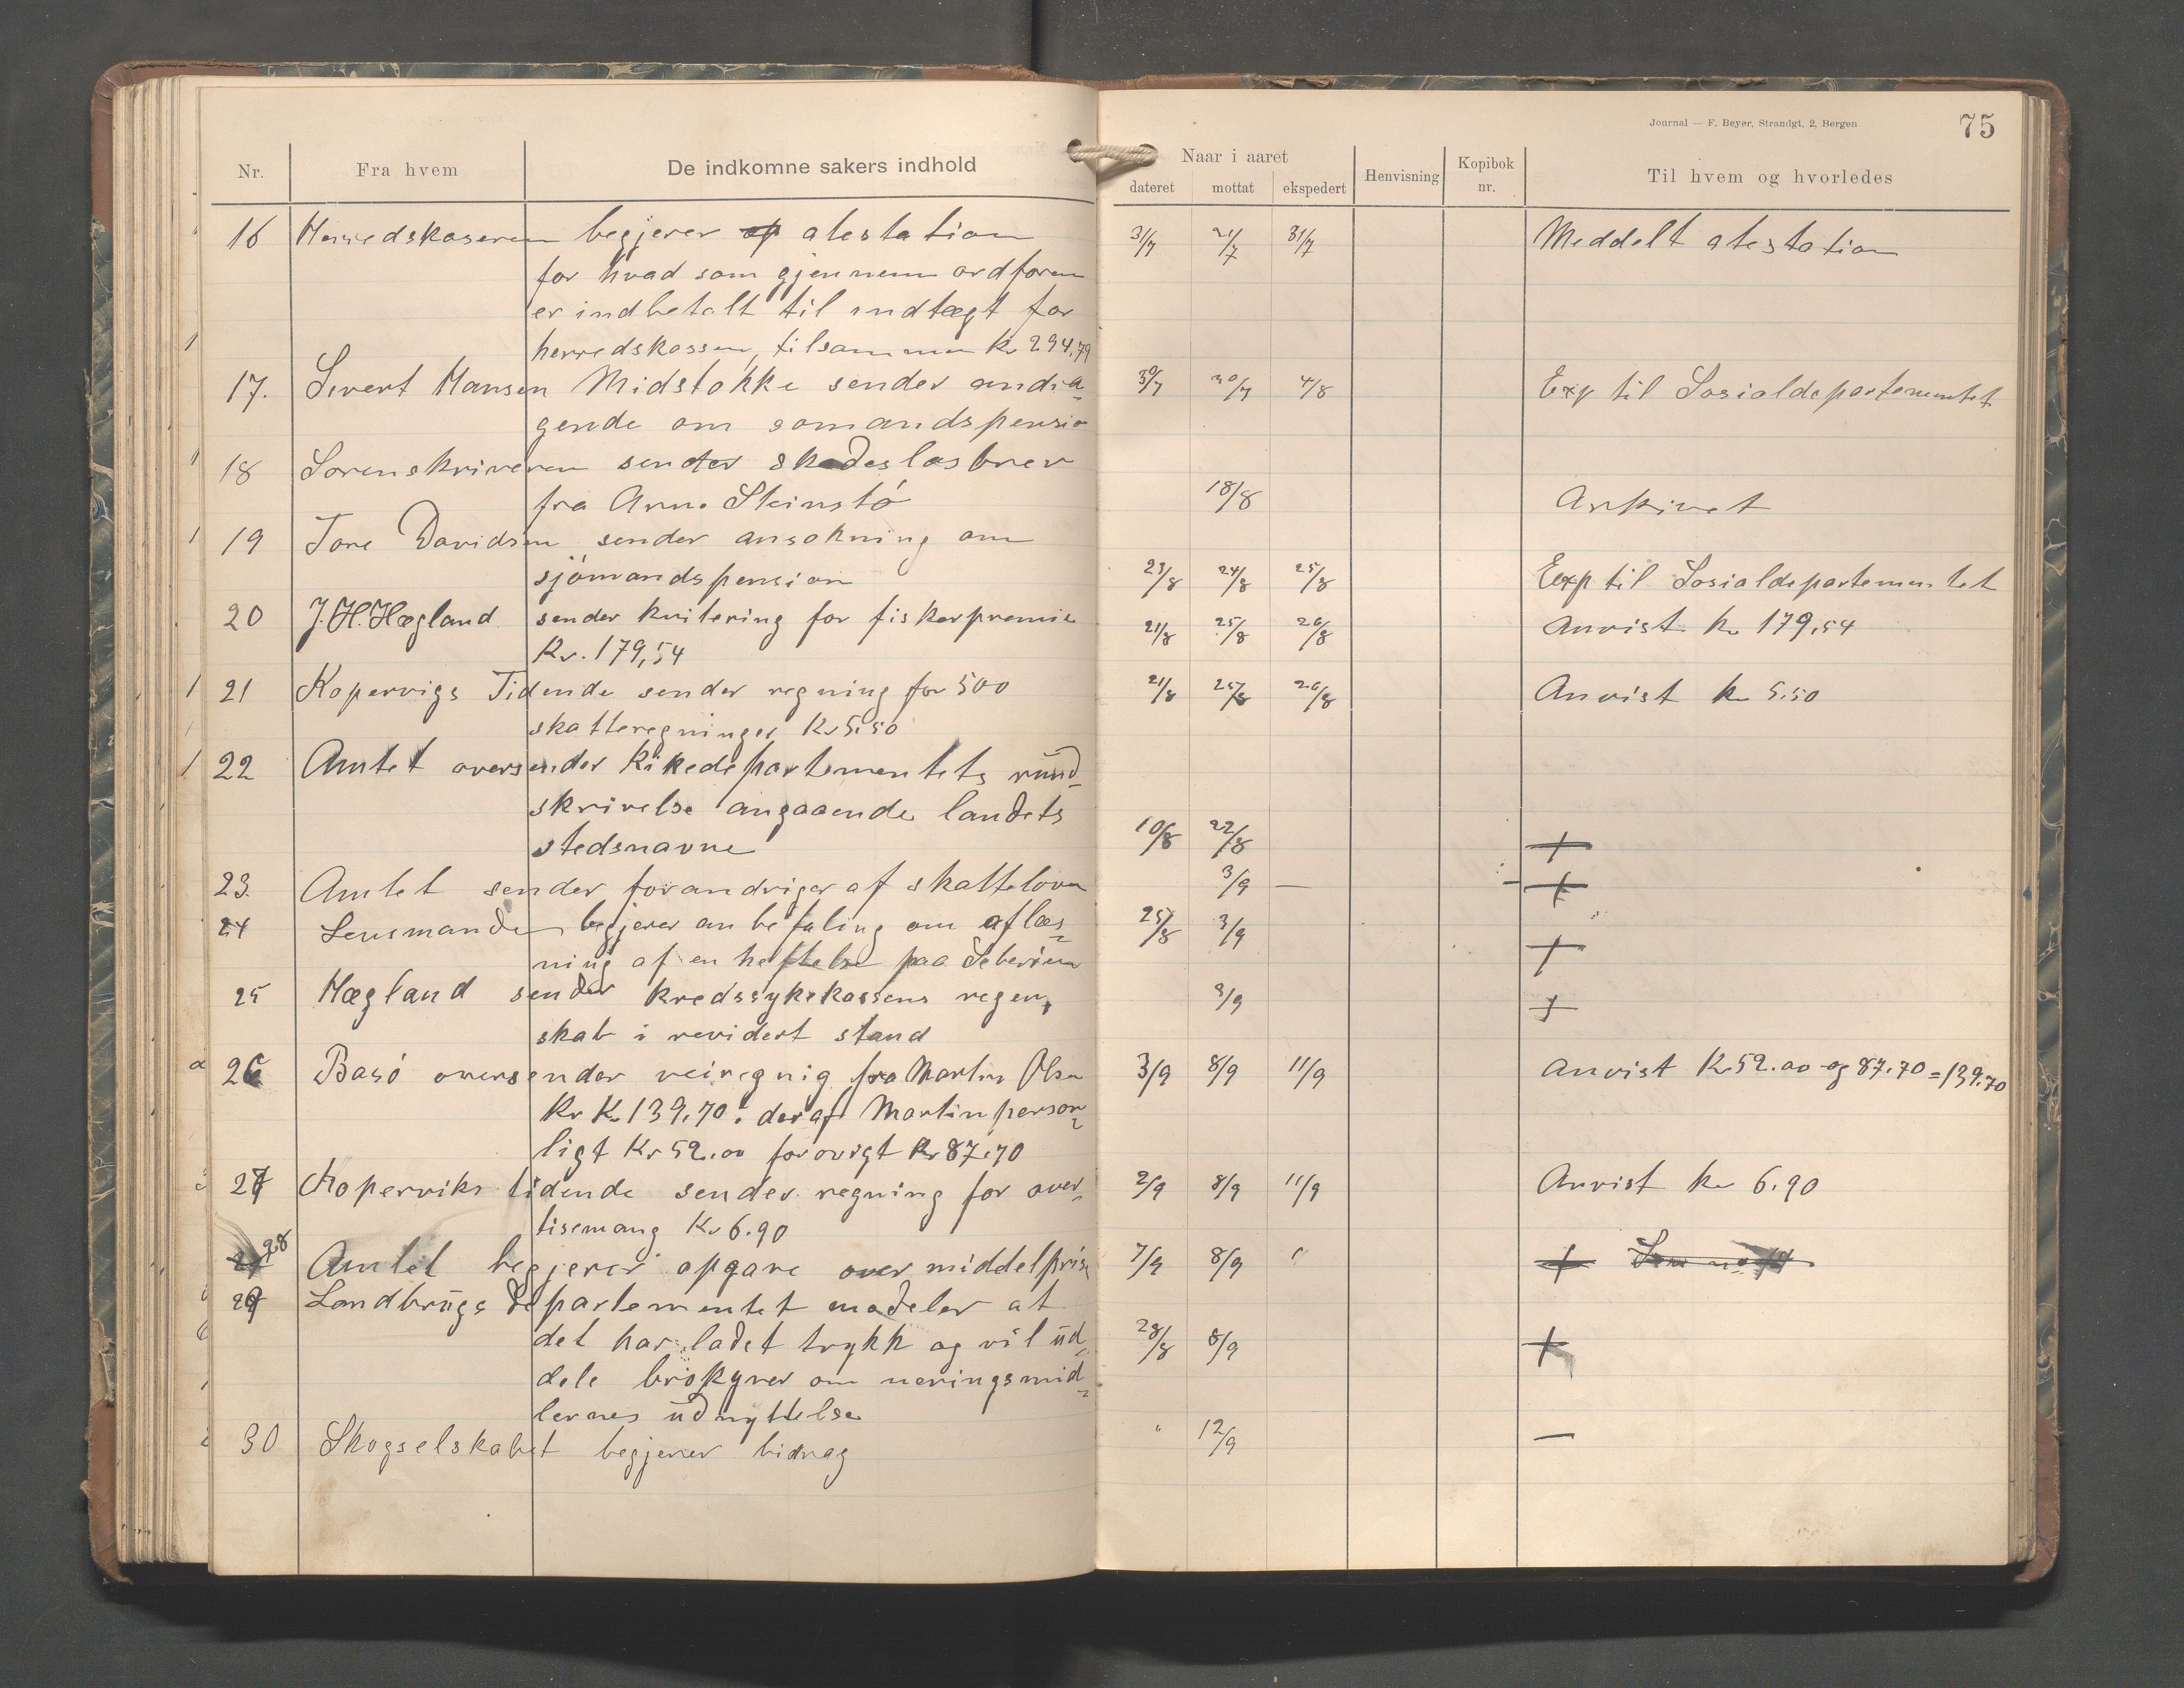 Journal — F. Beyer, Strandgt. 2, Bergen
75
Nr. Fra hvem De indkomne sakers indhold Naar i aaret dateret mottat ekspedert Henvisning Kopibok nr. Til hvem og hvorledes
16 Herredskaseren begjerer op atestation 31/7 31/7 31/7 Meddelt atestation
for hvad som gjennem ordforen
er indbetalt til indtægt for
herredskassen, tilsammen Kr 294,79
17. Sivert Hansen Midstokke sender andra- 30/7 30/7 4/8 Exp til Sosialdepartementet
gende om somandspensio
18 Sorenskriveren sender skadeslosbrev
fra Arne Steinstó 18/8 Arkivet
19 Tore Davidsen sender ansokning om
sjómandspension 23/8 24/8 25/8 Exp til Sosialdepartementet
20 J.H.Hægland sender kvitering for fiskerpremie 21/8 25/8 26/8 Anvist kr 179,54
Kr. 179,54
21 Kopervigs Tidende sender regning for 500 21/8 25/8 26/8 Anvist kr 5.50
skatteregninger Kr 5.50
22 Amtet oversender Kirkedepartementets rund-
skrivelse angaaende landets
stedsnavne 10/8 22/8 +
23. Amtet sender forandriger af skatteloven 3/9 — +
24 Lensmanden begjerer anbefaling om aflæs- 25/8 3/9 +
ning af en heftelse paa
25 Hægland sender kredssykekassens regen- 3/9 +
skab i revidert stand
26 Basó oversender veiregnig fra Martin Olsen 3/9 8/9 11/9 Anvist Kr 52.00 og 87.70 = 139.70
Kr Kr 139,70. deraf Martin person-
ligt Kr 52.00 forovrigt Kr 87.70
27 Koperviks tidende sender regning for aver- 2/9 8/9 11/9 Anvist kr 6.90
tisemang Kr 6.90
28 Amtet begjerer opgave over middelpris 7/9 8/9 +
29 Landbrugsdepartementet medeler at
det har ladet trykk og vil ud- 28/8 8/9 +
dele brokyrer om neringsmid-
lernes udnyttelse
30 Skogselskabet begjerer bidrag " 12/9 —